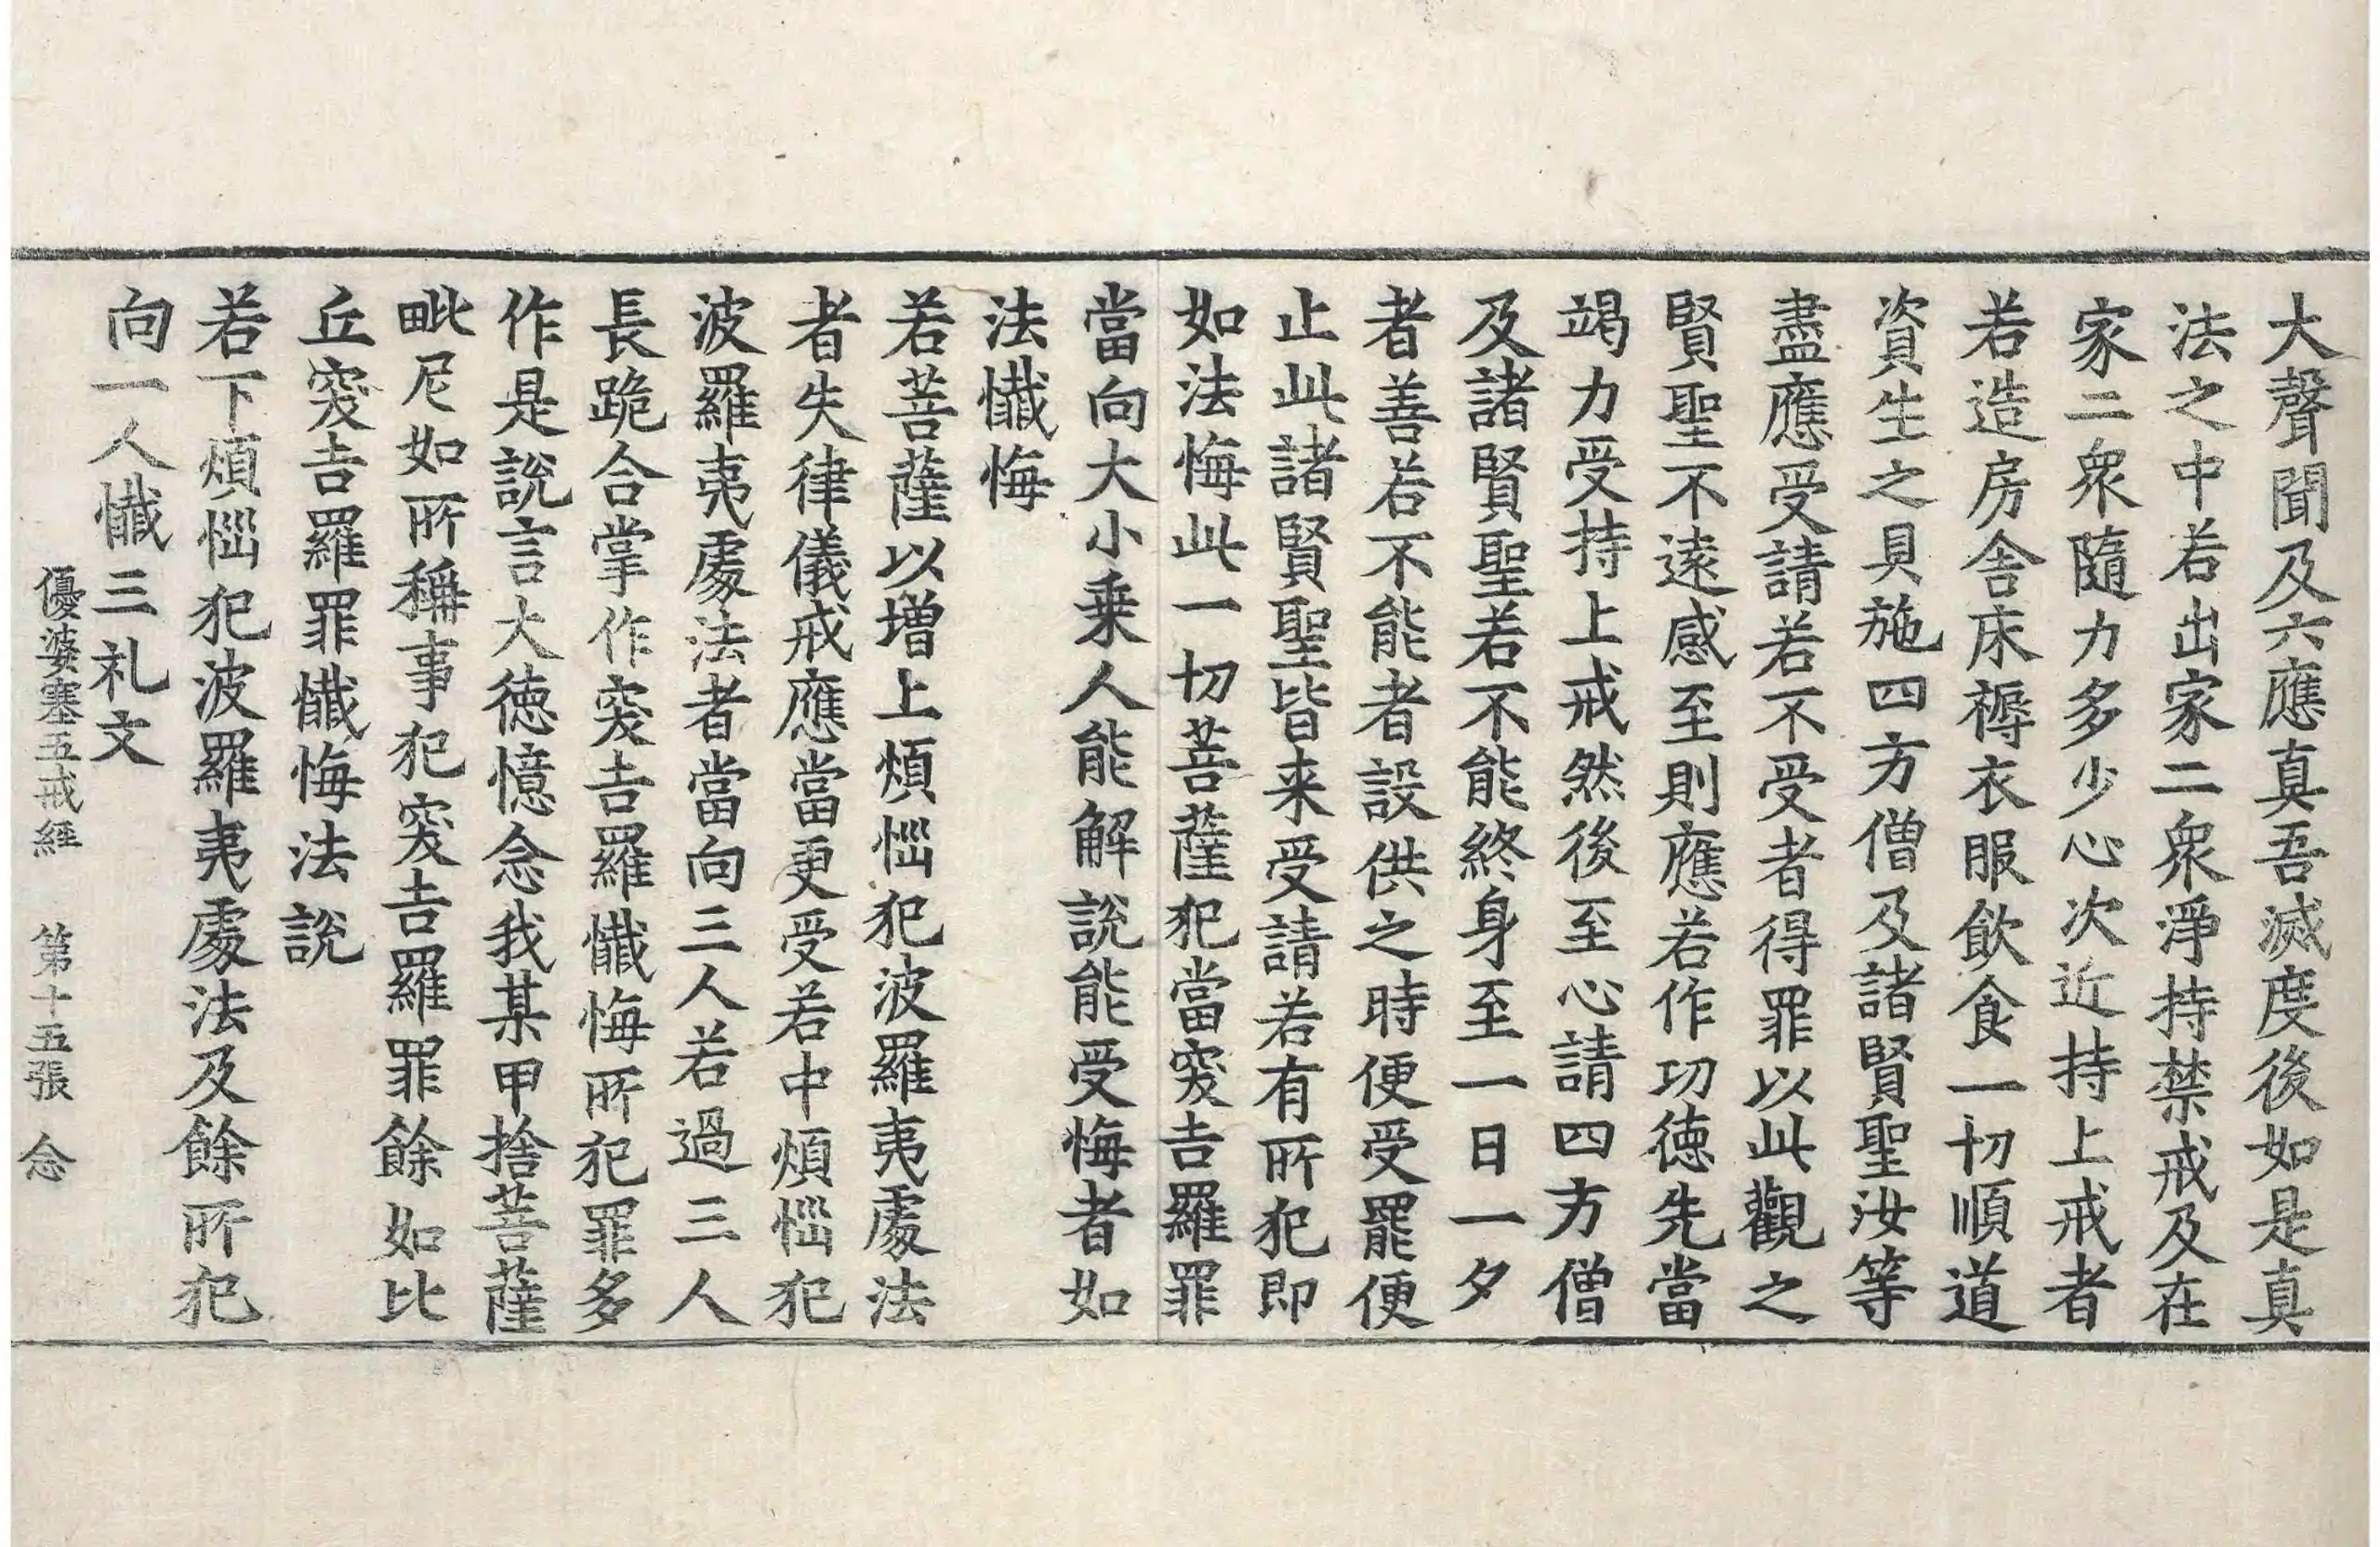 大聲聞及六應真吾滅度後如是真
法之中若出家二衆淨持禁戒及在
家二衆隨力多少心次近持上戒者
若造房舍床褥衣服飲食一切順道
資生之具施四方僧及諸賢聖汝等
盡應受請若不受者得罪以此觀之
賢聖不遠感至則應若作功德先當
竭力受持上戒然後至心請四方僧
及諸賢聖若不能終身至一日一夕
者善若不能者設供之時便受罷便
止此諸賢聖皆来受請若有所犯即
如法悔此一切菩薩犯當突吉羅罪
當向大小乗人能解說能受悔者如
法懺悔
若菩薩以增上煩惱犯波羅夷處法
者失律儀戒應當更受若中煩惱犯
波羅夷處法者當向三人若過三人
長跪合掌作突吉羅懺悔所犯罪多
作是說言大德憶念我某甲捨菩薩
毗尼如所稱事犯突吉羅罪餘如比
丘突吉羅罪懺悔法說
若下煩惱犯波羅夷處法及餘所犯
向一人懺三礼文
優婆塞五戒經　第十五張　念